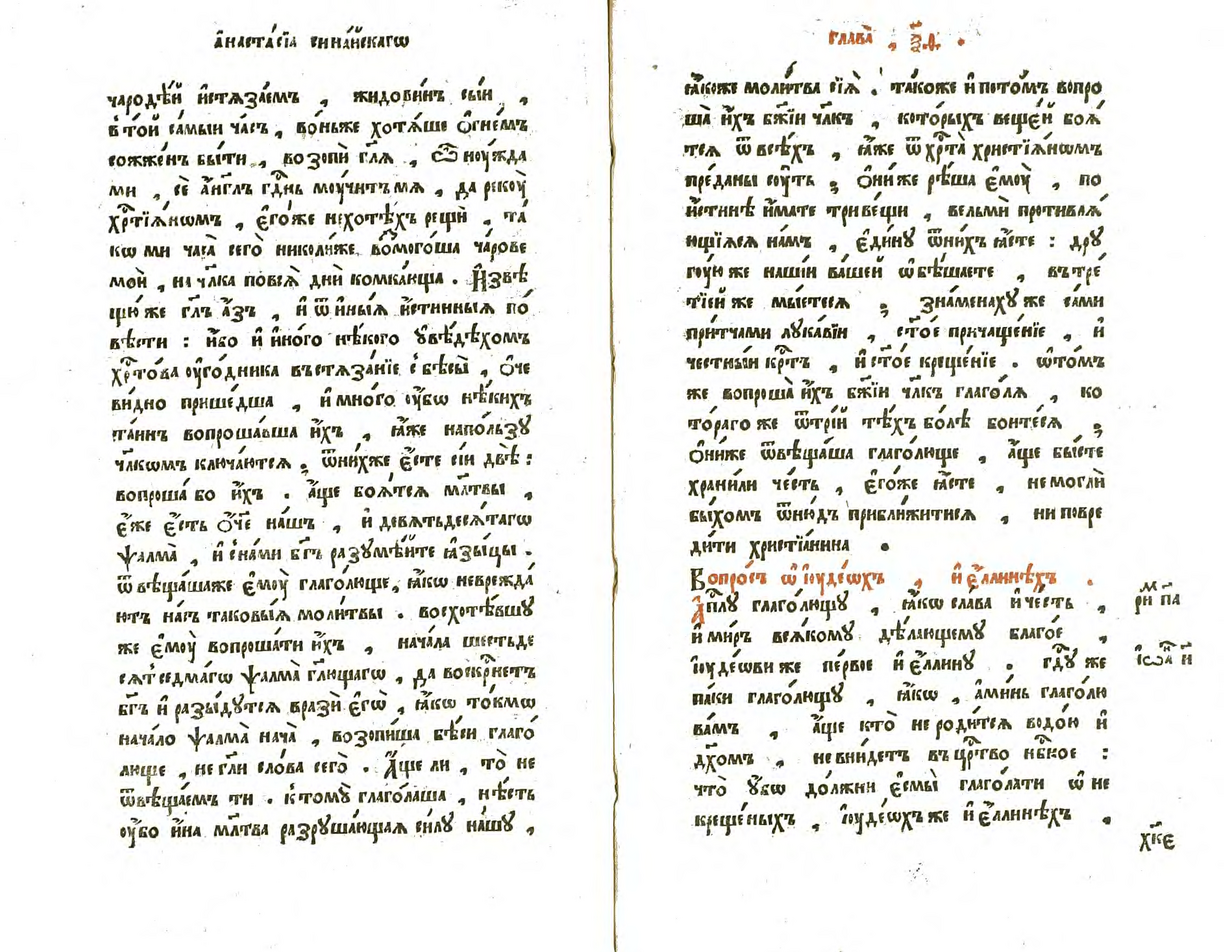 а҆наста́сїа сина́йскагѡ
чародѣ́й и҆стѧза́емъ , жидови́нъ сы́и ,
в то́й са́мыи ча́съ , во́ньже хотѧ́ше ѻ҆гне́мъ
сожже́нъ бы́ти , возопѝ гл҃ѧ , ѽ ноу́жда
ми , сѐ а҆́нг҃лъ гд҇нь моу́читъ мѧ , да рекоу̀
хрⷭ҇тїѧ́нѡмъ , є҆го́же нехотѣ́хъ рещѝ , та́
кѡ ми часа̀ сего̀ николи́же возмого́ша ча́рове
мои̑ , на чл҃ка повсѧ̀ дни̑ комка́юща . И҆звѣ
щю́ же гл҃ъ а҆́зъ , и҆ ѿ и҆ны́ѧ и҆́стинныѧ по́
вѣсти : и҆́бо и҆ и҆но́го нѣ́кого ᲂу҆вѣ́дѣхомъ
хрⷭ҇то́ва ᲂу҆го́дника въстѧза́нїе с бѣ́сы , ѻ҆́че
ви́дно прише́дша , и҆ мно́го ᲂу҆́бѡ нѣ́кихъ
та́инъ вопроша́вша и҆́хъ , ꙗ҆́же напо́льзу
чл҃кѡмъ ключа́ютсѧ , ѿ ни́хже є҆́сте сїи́ двѣ̀ :
вопроша́ бо и҆́хъ . а҆́ще боѧ́тсѧ мл҃твы ,
є҆́же є҆́сть ѻ҆́ч҃е на́шъ , и҆ девѧтьдесѧ́тагѡ
ѱалма̀ , и҆ с на́ми бг҃ъ разумѣ́йте ꙗ҆зы́цы .
ѿвѣща́шаже є҆моу̀ глаго́люще , ꙗ҆́кѡ неврежда́
ютъ на́съ таковы́ѧ моли́твы . восхотѣ́вшу
же є҆моу̀ вопроша́ти и҆́хъ , нача́ла шестьде
сѧ́т седма́гѡ ѱалма̀ гл҃ющагѡ , да воскрⷭ҇нетъ
бг҃ъ и҆ разы́дутсѧ вразѝ є҆гѡ̀ , ꙗ҆́кѡ то́кмѡ
нача́ло ѱалма̀ нача̀ , возопи́ша бѣ́си глаго́
люще , не гл҃и сло́ва сего̀ . А҆́ще ли , то̀ не
ѿвѣща́емъ ти . к томꙋ̀ глаго́лаша , нѣ́сть
ᲂу҆́бо и҆́на мл҃тва разруша́ющаѧ си́лу на́шу ,
глава̀ , ѯ҃ѳ .
ꙗ҆́коже моли́тва сїѧ̀ . та́коже и҆ пото́мъ вопро
ша̀ и҆́хъ бж҃їи чл҃къ , кото́рыхъ веще́й боѧ́
тсѧ ѿ всѣ́хъ , ꙗ҆́же ѿ хрⷭ҇та̀ христїѧ́нѡмъ
пре́даны соу́ть ; ѻ҆ни́ же рѣ́ша є҆моу̀ , по
и҆́стинѣ и҆́мате три ве́щи , вельмѝ противлѧ́
ющїѧсѧ на́мъ , є҆ди́ну ѿ ни́хъ ꙗ҆́сте : дру
гоу́ю же на́шїи ва́шей ѡ҆бѣ́шаете , въ тре́
тїей же мы́етесѧ ; зна́менахуже са́ми
при́тчами лука́вїи , ст҃о́е причаще́нїе , и҆
честны́и крⷭ҇тъ , и҆ ст҃о́е креще́нїе . ѿто́мъ
же вопроша̀ и҆́хъ бж҃їи чл҃къ глаго́лѧ , ко
то́раго же ѿ трїи́ тѣ́хъ бо́лѣ бои́тесѧ ;
ѻ҆ни́же ѿвѣща́ша глаго́люще , а҆́ще бы́сте
храни́ли че́сть , є҆го́же ꙗ҆́сте , не моглѝ
бы́хомъ ѿню́дъ прибли́житисѧ , ни повре
ди́ти христїани́на .
Вопро́съ ѡ҆ і҆уде́ѡхъ , и҆ є҆́ллинѣхъ .
А҆п҇лу глаго́лющу , ꙗ҆́кѡ сла́ва и҆ че́сть ,
и҆ ми́ръ всѧ́кому дѣ́лающему благо́е ,
і҆уде́ѡви же пе́рвое и҆ є҆́ллину . гдⷭ҇у же
па́ки глаго́лющу , ꙗ҆́кѡ , а҆ми́нь глаго́лю
ва́мъ , а҆́ще кто̀ не роди́тсѧ водо́ю и҆
дх҃омъ , не вни́детъ въ црⷭ҇тво нбⷭ҇ное :
что̀ ᲂу҆́бѡ до́лжни є҆смы̀ глаго́лати ѡ҆ не
креще́ныхъ , і҆уде́ѡхъ же и҆ є҆́ллинѣхъ .